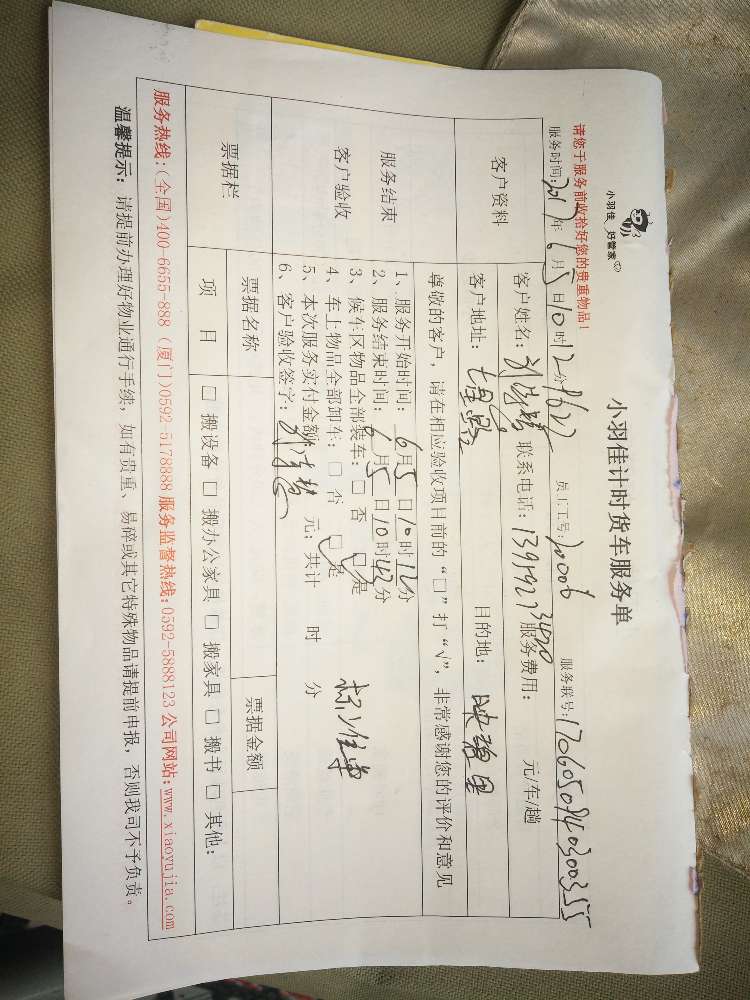 小羽佳 好管家
小羽佳计时货车服务单
请您于服务前收拾好您的贵重物品!
服务时间:2017年6月5日10时12分 员工工号:20006 服务联号:
客户资料
客户姓名: 联系电话: 服务费用: 元/车/趟
客户地址: 目的地:
服务结束
客户验收
尊敬的客户,请在相应验收项目前的“□”打“√”,非常感谢您的评价和意见
1、服务开始时间:6月5日10时12分
2、服务结束时间:6月5日10时43分
3、候车区物品全部装车:□否 □是
4、车上物品全部卸车:□否 □是
5、本次服务实付金额: 元;共计 时 分
6、客户验收签字:
票据栏
票据名称 票据金额
项 目 □搬设备 □搬办公家具 □搬家具 □搬书 □其他:
服务热线:(全国)400-6655-888 (厦门)0592-5178888 服务监督热线:0592-5888123 公司网站:www.xiaoyujia.com
温馨提示:请提前办理好物业通行手续,如有贵重、易碎或其它特殊物品请提前申报,否则我司不予负责。